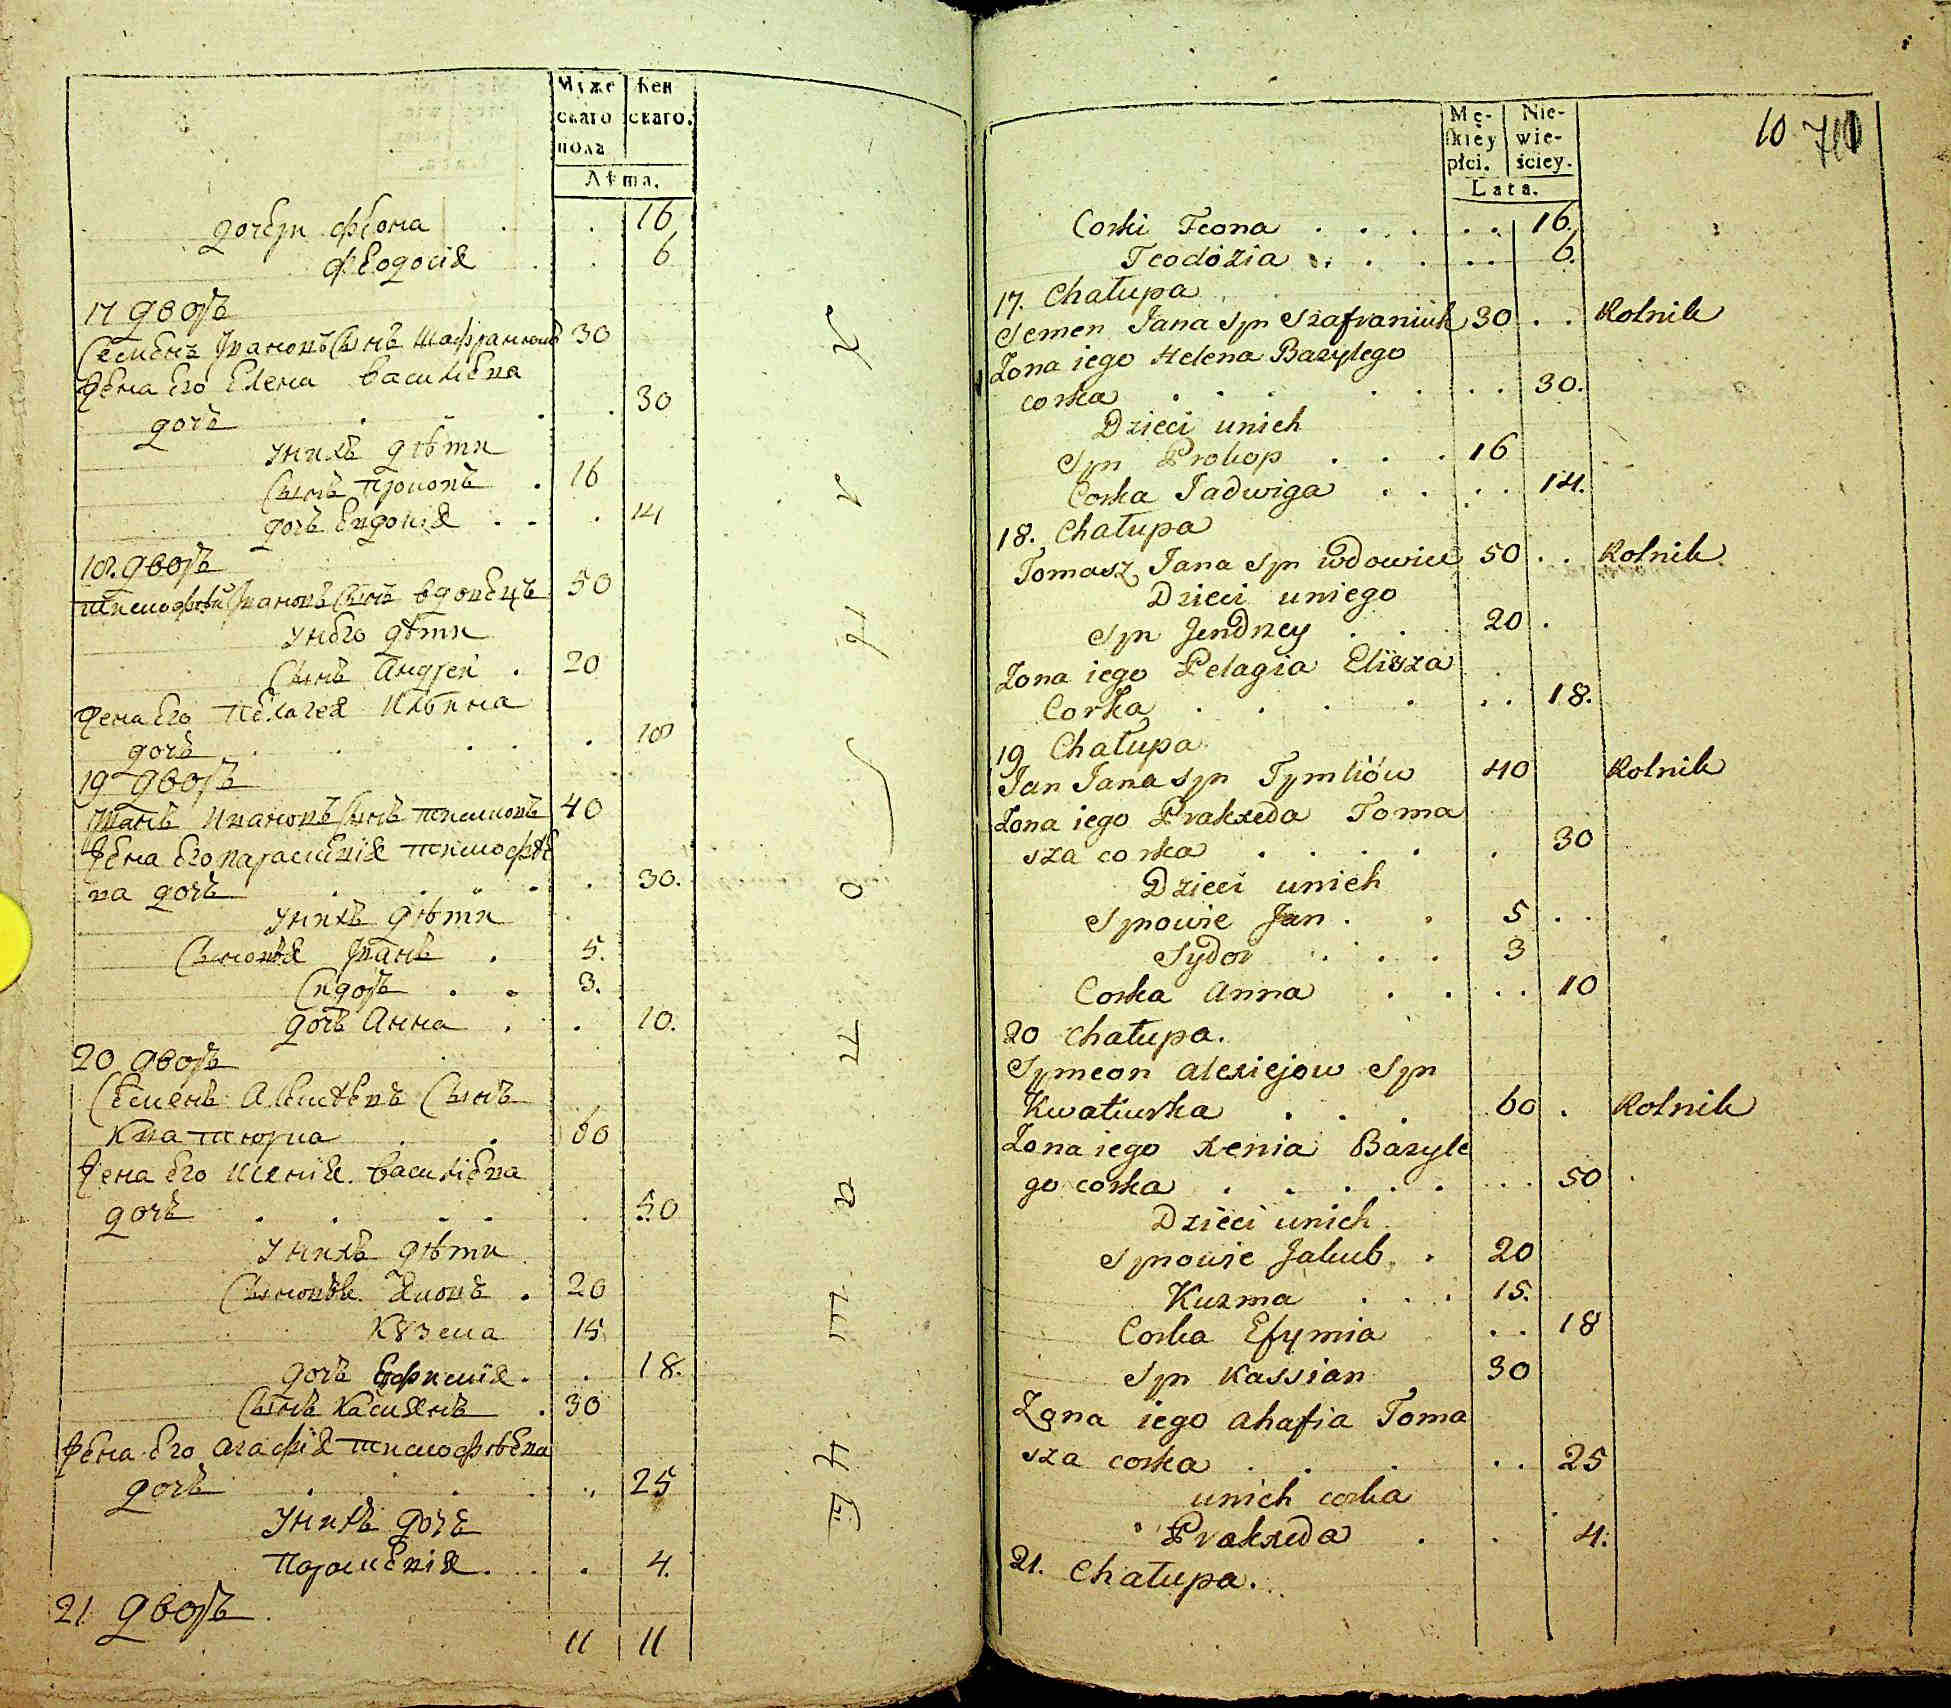 Муже
скаго
полa
Жен
скаго.
Лѣта.
дочери Феона . . 16
Феодосія . . 6
17 дворъ
Семенъ Ивановъ Сынъ Шафранюкъ 30
Жена Его Елена Василіева
дочь . . . . 30
У нихъ дѣти
Сынъ Прокопъ . 16
дочь Евдокія . . . 14
18. дворъ
Тимофѣй Ивановъ Сынъ вдовецъ 50
У него дѣти
Сынъ Андрей . 20
Жена Его Пелагея Илѣина
дочь . . . . . 18
19 дворъ
Иванъ Ивановъ Сынъ 40
Жена Его Параскевія Тимофѣе
ва дочь . . . . . 30.
У нихъ дѣти
Сыновья Иванъ . 5.
Сидоръ . . 3.
дочь Анна . . 10.
20 дворъ
Семенъ Алексѣевъ Сынъ
Кватюрка . . 60
Жена Его Ксенія Василіева
дочь . . . . . 50
У нихъ дѣти
Сыновья Яковъ . 20
Кузма 15
дочь Ефимія . . 18.
Сынъ Касиянъ . 30
Жена Его Агафія Тимофѣева
дочь . . . . 25
У нихъ дочь
Параскевія . . . 4.
21 дворъ
11 11
Mę-
skiey
płci.
Nie-
wie-
ściey.
Lata.
10
710
Corki Teona . . . . . . 16.
Teodozia . . . . . . 6.
17. Chałupa
Semen Jana Syn Szafraniuk 30 . . Rolnik
Zona iego Helena Bazylego
corka . . . . . . 30.
Dzieci unich
Syn Prokop . . . 16
Corka Jadwiga . . . . 14.
18. Chałupa
Tomasz Jana Syn wdowiec 50 . . Rolnik
Dzieci uniego
Syn Jendrzey . . 20 .
Zona iego Pelagia Elisza
Corka . . . . . . 18.
19 Chałupa
Jan Jana syn Tymkiów 40 Rolnik
Zona iego Prakxeda Toma
sza corka . . . . . 30
Dzieci unich
Synowie Jan . . 5 . .
Sydor . . . 3
Corka Anna . . . . 10
20 Chałupa.
Symeon alexiejow Syn
Kwatiurka . . . 60 . Rolnik
Zona iego Xenia Bazyle
go corka . . . . . . . 50
Dzieci unich
Synowie Jakub . . 20
Kuzma . . . 15.
Corka Efymia . . 18
Syn Kassian 30
Zona iego ahafia Toma
sza corka . . . . . 25
unich corka
Prakxeda . . 4.
21. Chałupa.